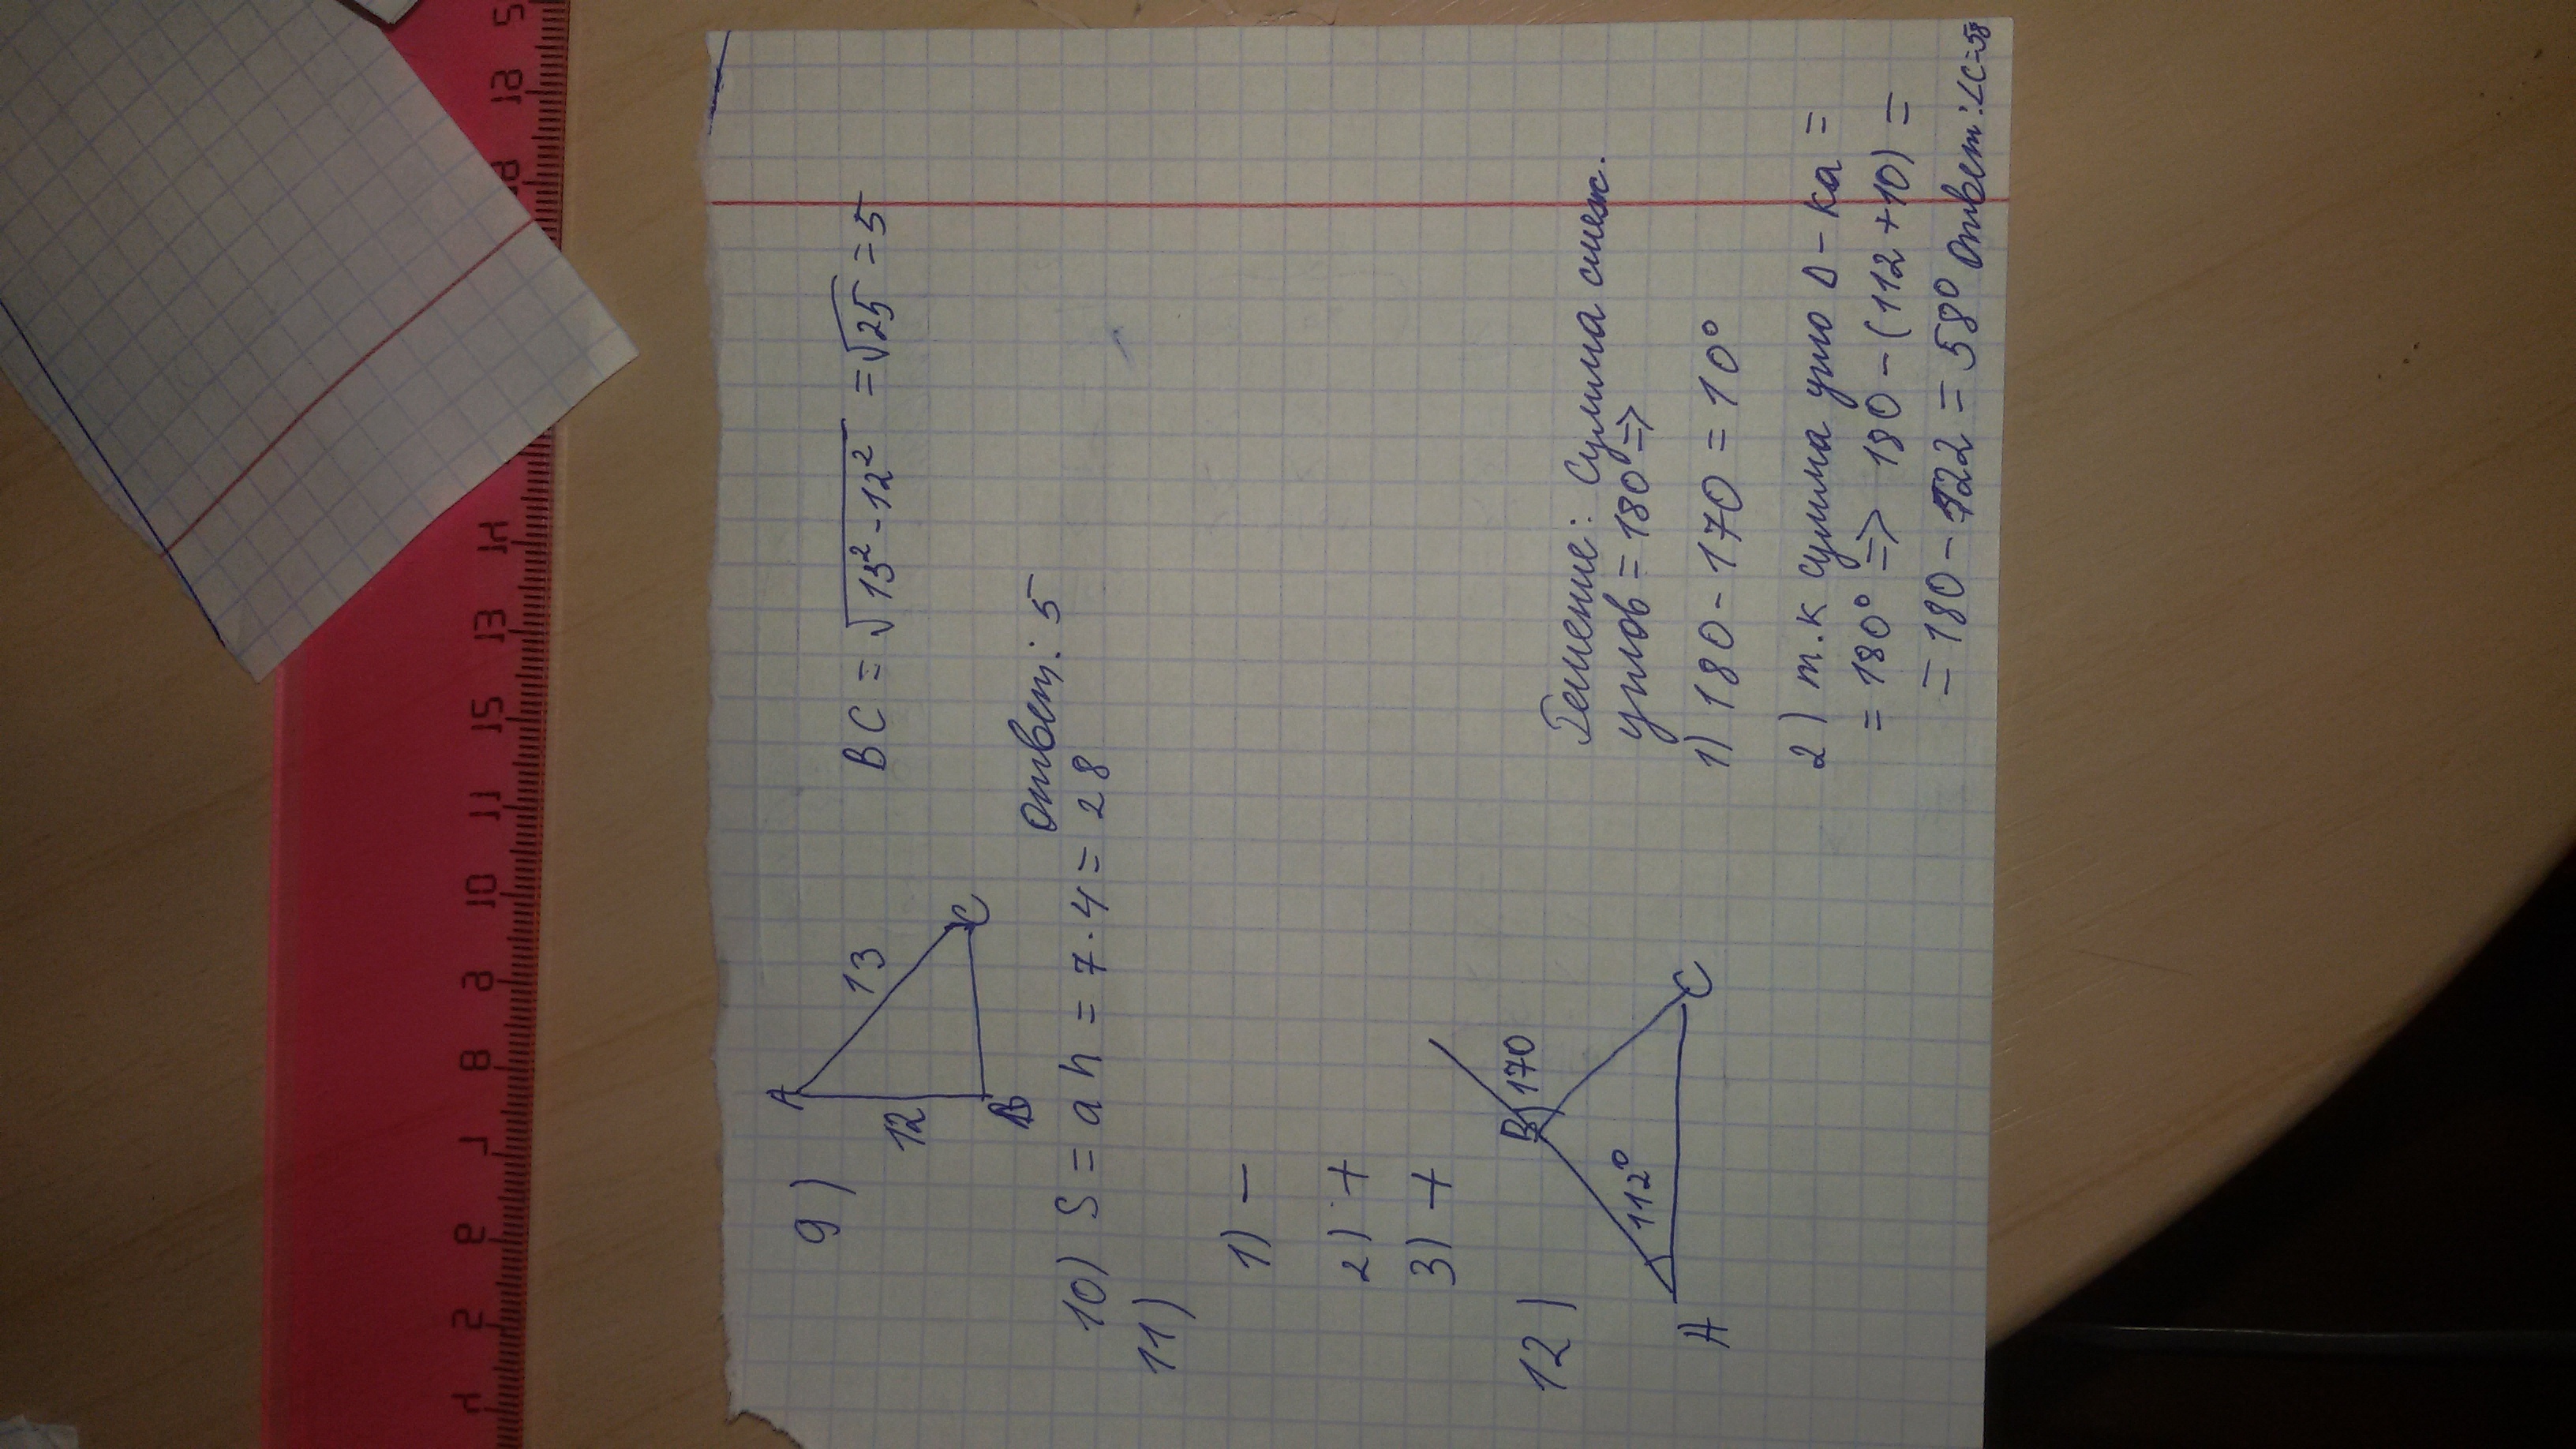 9)
A
13
12
B
C
BC = √13² - 12² = √25 = 5
Ответ: 5
10) S = a h = 7 · 4 = 28
11)
1) −
2) +
3) +
12)
B
170
112°
A
C
Решение: Сумма смеж.
углов = 180 =>
1) 180 - 170 = 10°
2) т.к сумма угло Δ - ка =
= 180° => 180 - (112 + 10) =
= 180 - 122 = 58° Ответ: ∠C = 58